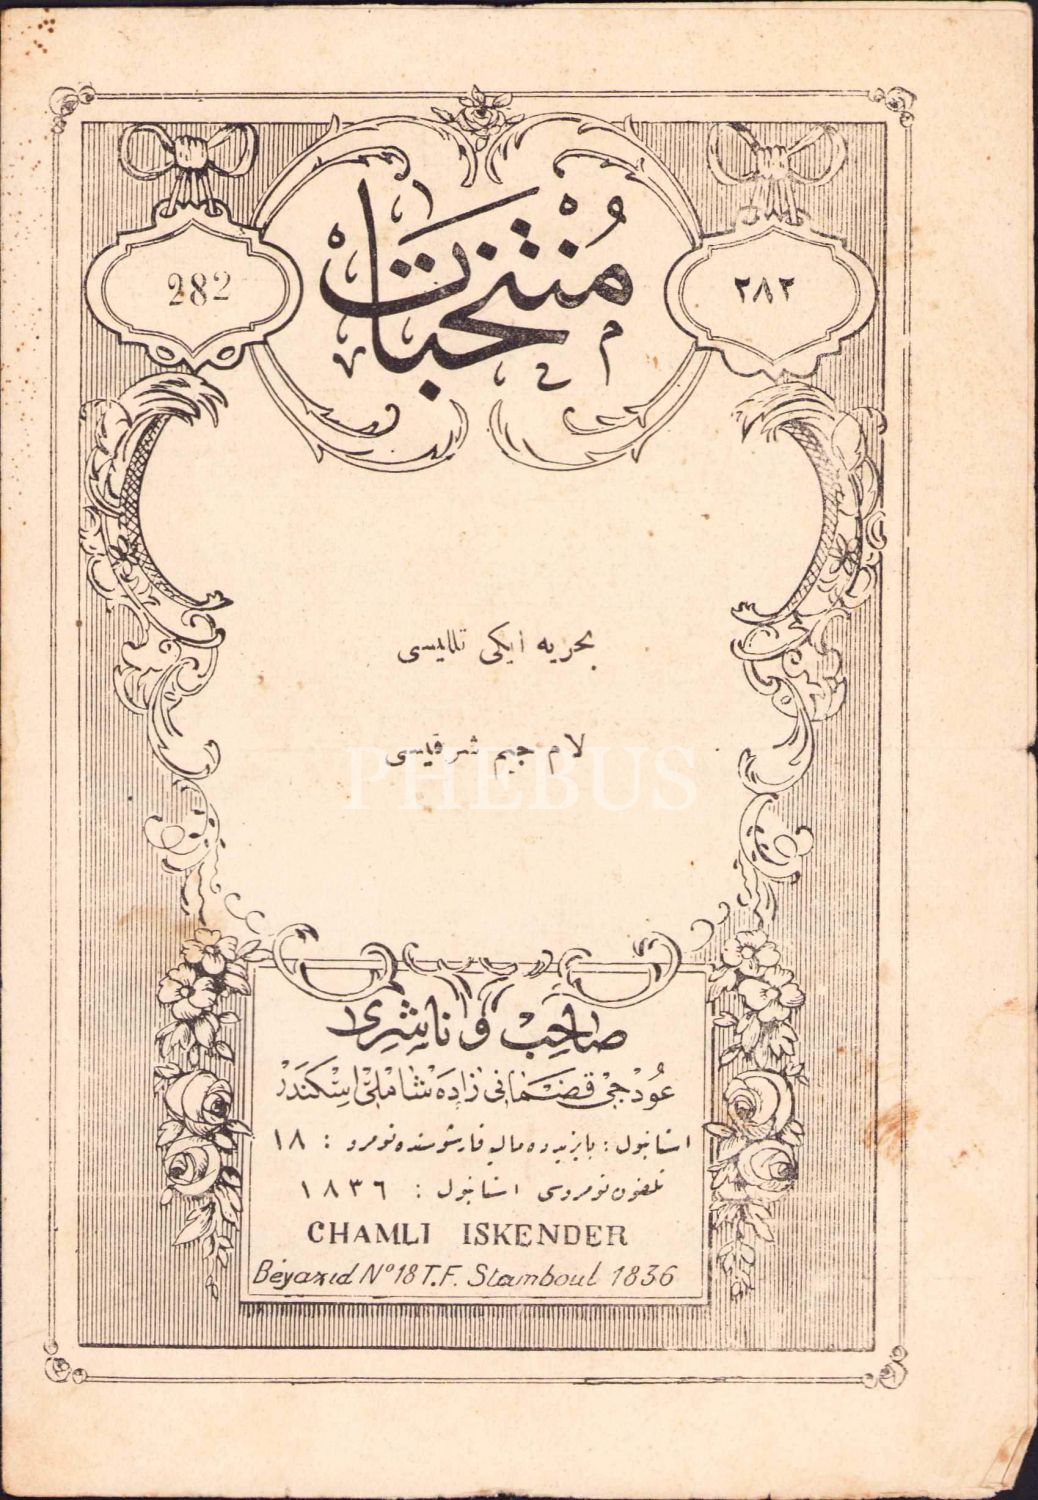 مُنْتَخَبَات
282
٢٨٢
بحريه ايكى تللیسى
لام جيم شرقیسى
PHEBUS
صَاحِبْ وْ نَاشِرِى
عُودْجِى قُضْمَانِى زَادَه شَامْلِى اِسْكَنْدَرْ
استانبول : بايزيدده مالیه قارشوسنده نومرو : ١٨
تلفون نومروسى استانبول : ١٨٣٦
CHAMLI ISKENDER
Béyazid Nº 18 T.F. Stamboul 1836